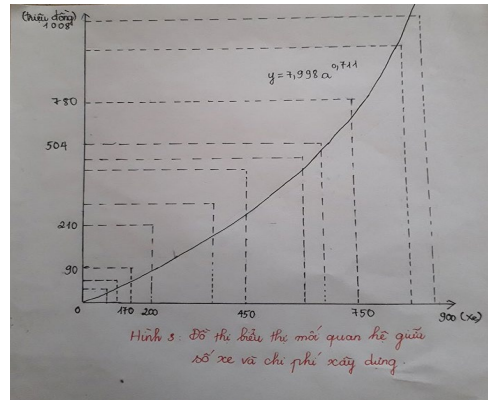 (triệu đồng)
1008
780
504
210
90
y = 7,998 a^0,711
0
170
200
450
750
900 (xe)
Hình 3: Đồ thị biểu thị mối quan hệ giữa
số xe và chi phí xây dựng.